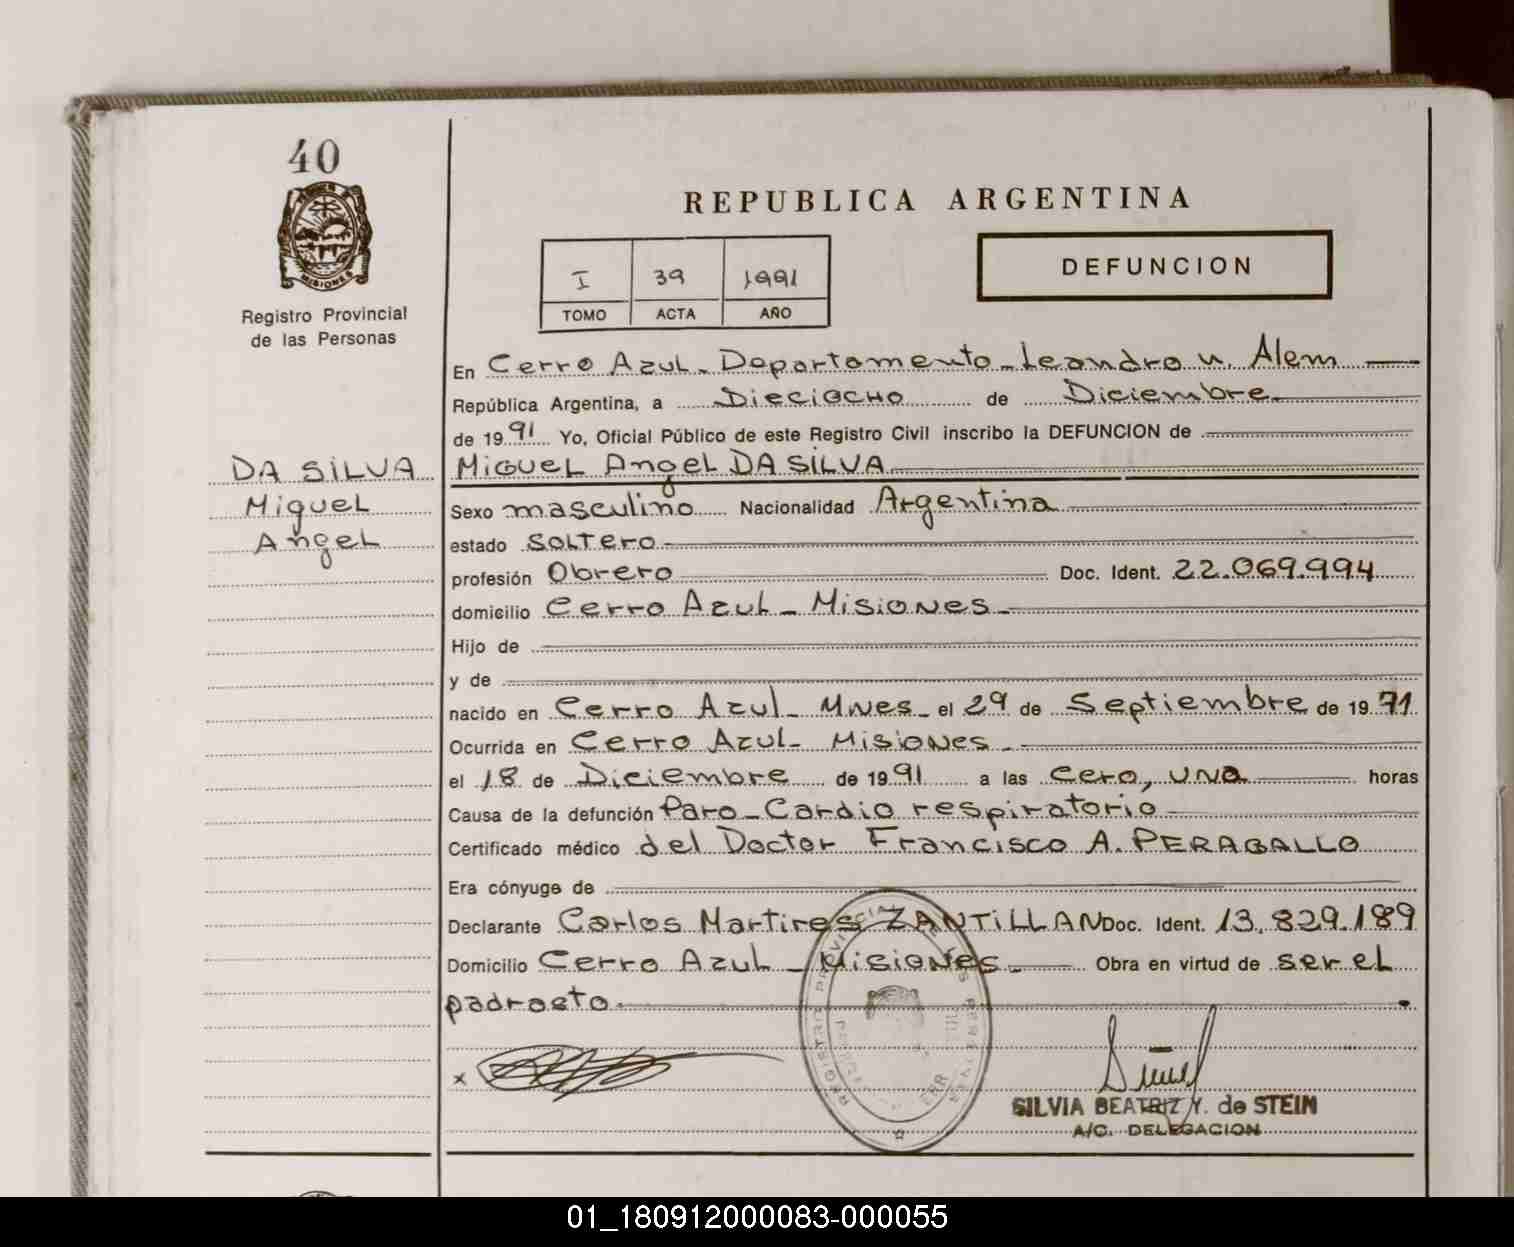 40
MISIONES
Registro Provincial
de las Personas
REPUBLICA ARGENTINA
I 39 1991
TOMO ACTA AÑO
DEFUNCION
En Cerro Azul - Departamento - Leandro N. Alem
República Argentina, a Dieciocho de Diciembre
de 1991 Yo, Oficial Público de este Registro Civil inscribo la DEFUNCION de
DA SILVA
Miguel
Angel
Miguel Angel DA SILVA
Sexo masculino Nacionalidad Argentina
estado soltero
profesión Obrero Doc. Ident. 22.069.994
domicilio Cerro Azul - Misiones
Hijo de
y de
nacido en Cerro Azul - Mnes - el 29 de Septiembre de 1971
Ocurrida en Cerro Azul - Misiones
el 18 de Diciembre de 1991 a las cero, una horas
Causa de la defunción Paro - Cardio respiratorio
Certificado médico del Doctor Francisco A. PERAGALLO
Era cónyuge de
Declarante Carlos Martires ZANTILLAN Doc. Ident. 13.829.189
Domicilio Cerro Azul - Misiones - Obra en virtud de ser el
padrasto
x
SILVIA BEATRIZ Y. de STEIN
A/C. DELEGACION
01_180912000083-000055